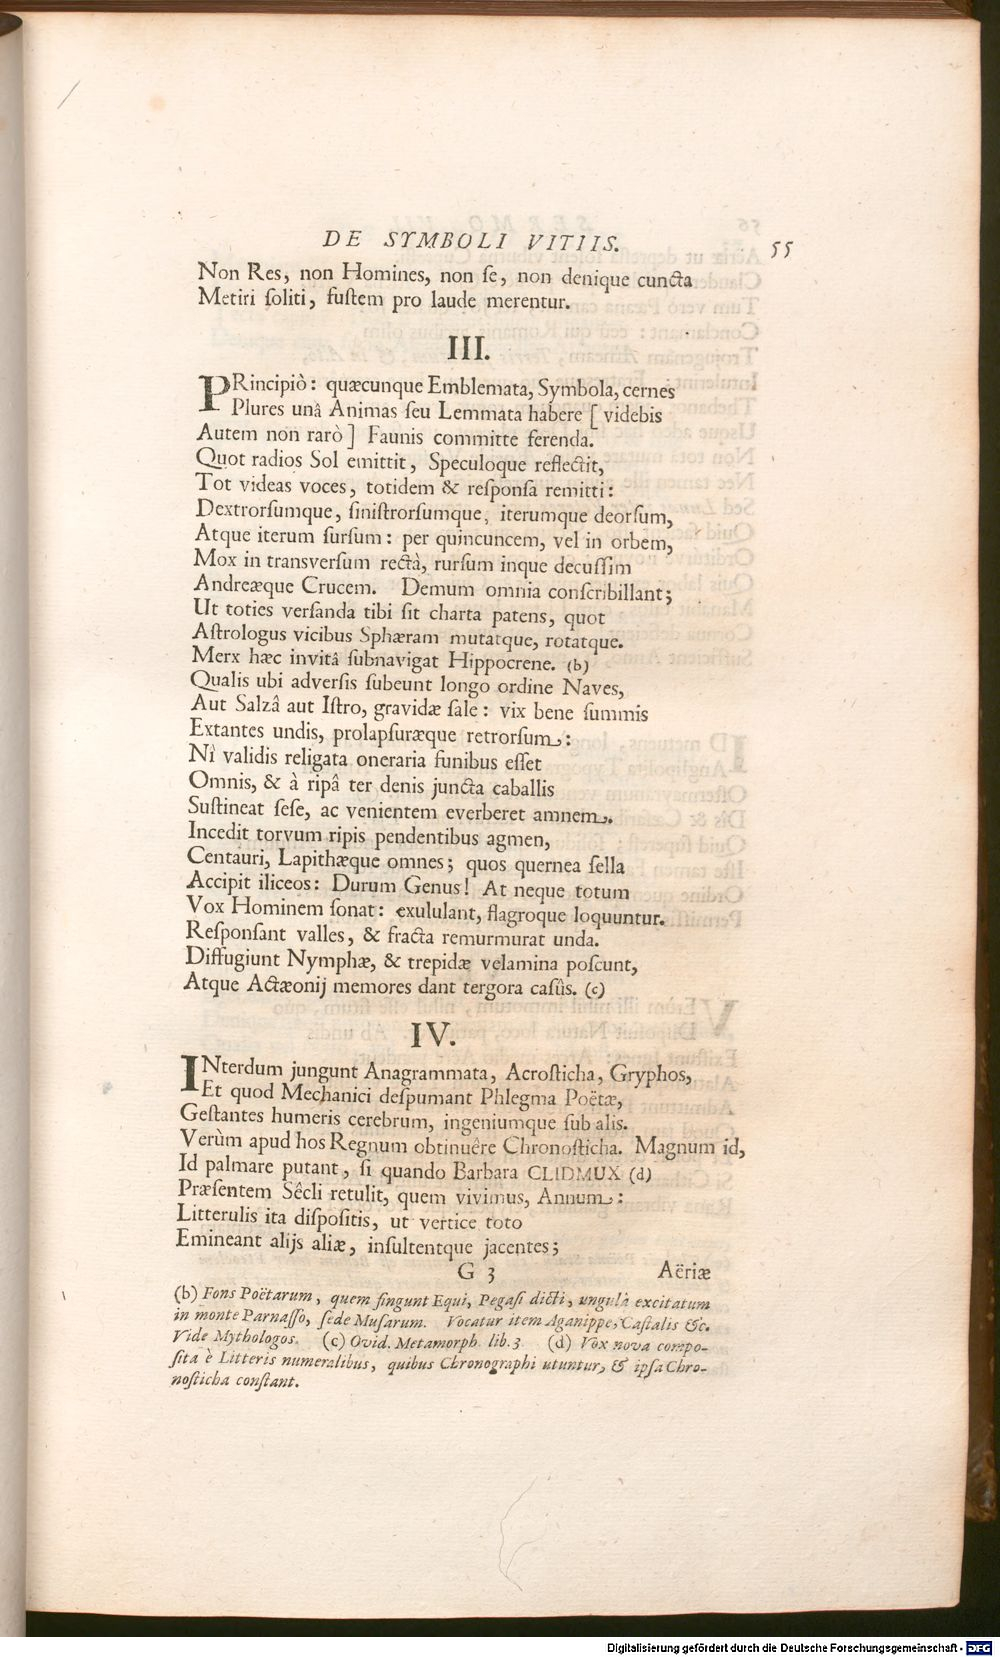 DE SYMBOLI VITIIS. 55
Non Res, non Homines, non ſe, non denique cuncta
Metiri ſoliti, fuſtem pro laude merentur.
III.
PRincipiò: quæcunque Emblemata, Symbola, cernes
Plures unâ Animas ſeu Lemmata habere [ videbis
Autem non rarò ] Faunis committe ferenda.
Quot radios Sol emittit, Speculoque reflectit,
Tot videas voces, totidem & reſponſa remitti:
Dextrorſumque, ſiniſtrorſumque, iterumque deorſum,
Atque iterum ſurſum: per quincuncem, vel in orbem,
Mox in transverſum rectà, rurſum inque decuſſim
Andreæque Crucem. Demum omnia conſcribillant;
Ut toties verſanda tibi ſit charta patens, quot
Aſtrologus vicibus Sphæram mutatque, rotatque.
Merx hæc invitâ ſubnavigat Hippocrene. (b)
Qualis ubi adverſis ſubeunt longo ordine Naves,
Aut Salzâ aut Iſtro, gravidæ ſale: vix bene ſummis
Extantes undis, prolapſuræque retrorſum:
Nî validis religata oneraria funibus eſſet
Omnis, & à ripâ ter denis juncta caballis
Suſtineat ſeſe, ac venientem everberet amnem.
Incedit torvum ripis pendentibus agmen,
Centauri, Lapithæque omnes; quos quernea ſella
Accipit iliceos: Durum Genus! At neque totum
Vox Hominem ſonat: exululant, flagroque loquuntur.
Reſponſant valles, & fracta remurmurat unda.
Diffugiunt Nymphæ, & trepidæ velamina poſcunt,
Atque Actæonij memores dant tergora caſûs. (c)
IV.
INterdum jungunt Anagrammata, Acroſticha, Gryphos,
Et quod Mechanici deſpumant Phlegma Poëtæ,
Geſtantes humeris cerebrum, ingeniumque ſub alis.
Verùm apud hos Regnum obtinuêre Chronoſticha. Magnum id,
Id palmare putant, ſi quando Barbara CLIDMUX (d)
Præſentem Sêcli retulit, quem vivimus, Annum:
Litterulis ita diſpoſitis, ut vertice toto
Emineant alijs aliæ, inſultentque jacentes;
G 3 Aëriæ
(b) Fons Poëtarum, quem fingunt Equi, Pegaſi dicti, ungulà excitatum
in monte Parnaſſo, ſede Muſarum. Vocatur item Aganippe, Caſtalis &c.
Vide Mythologos. (c) Ovid. Metamorph. lib. 3 (d) Vox nova compo-
ſita è Litteris numeralibus, quibus Chronographi utuntur, & ipſa Chro-
noſticha conſtant.
Digitalisierung gefördert durch die Deutsche Forschungsgemeinschaft - DFG